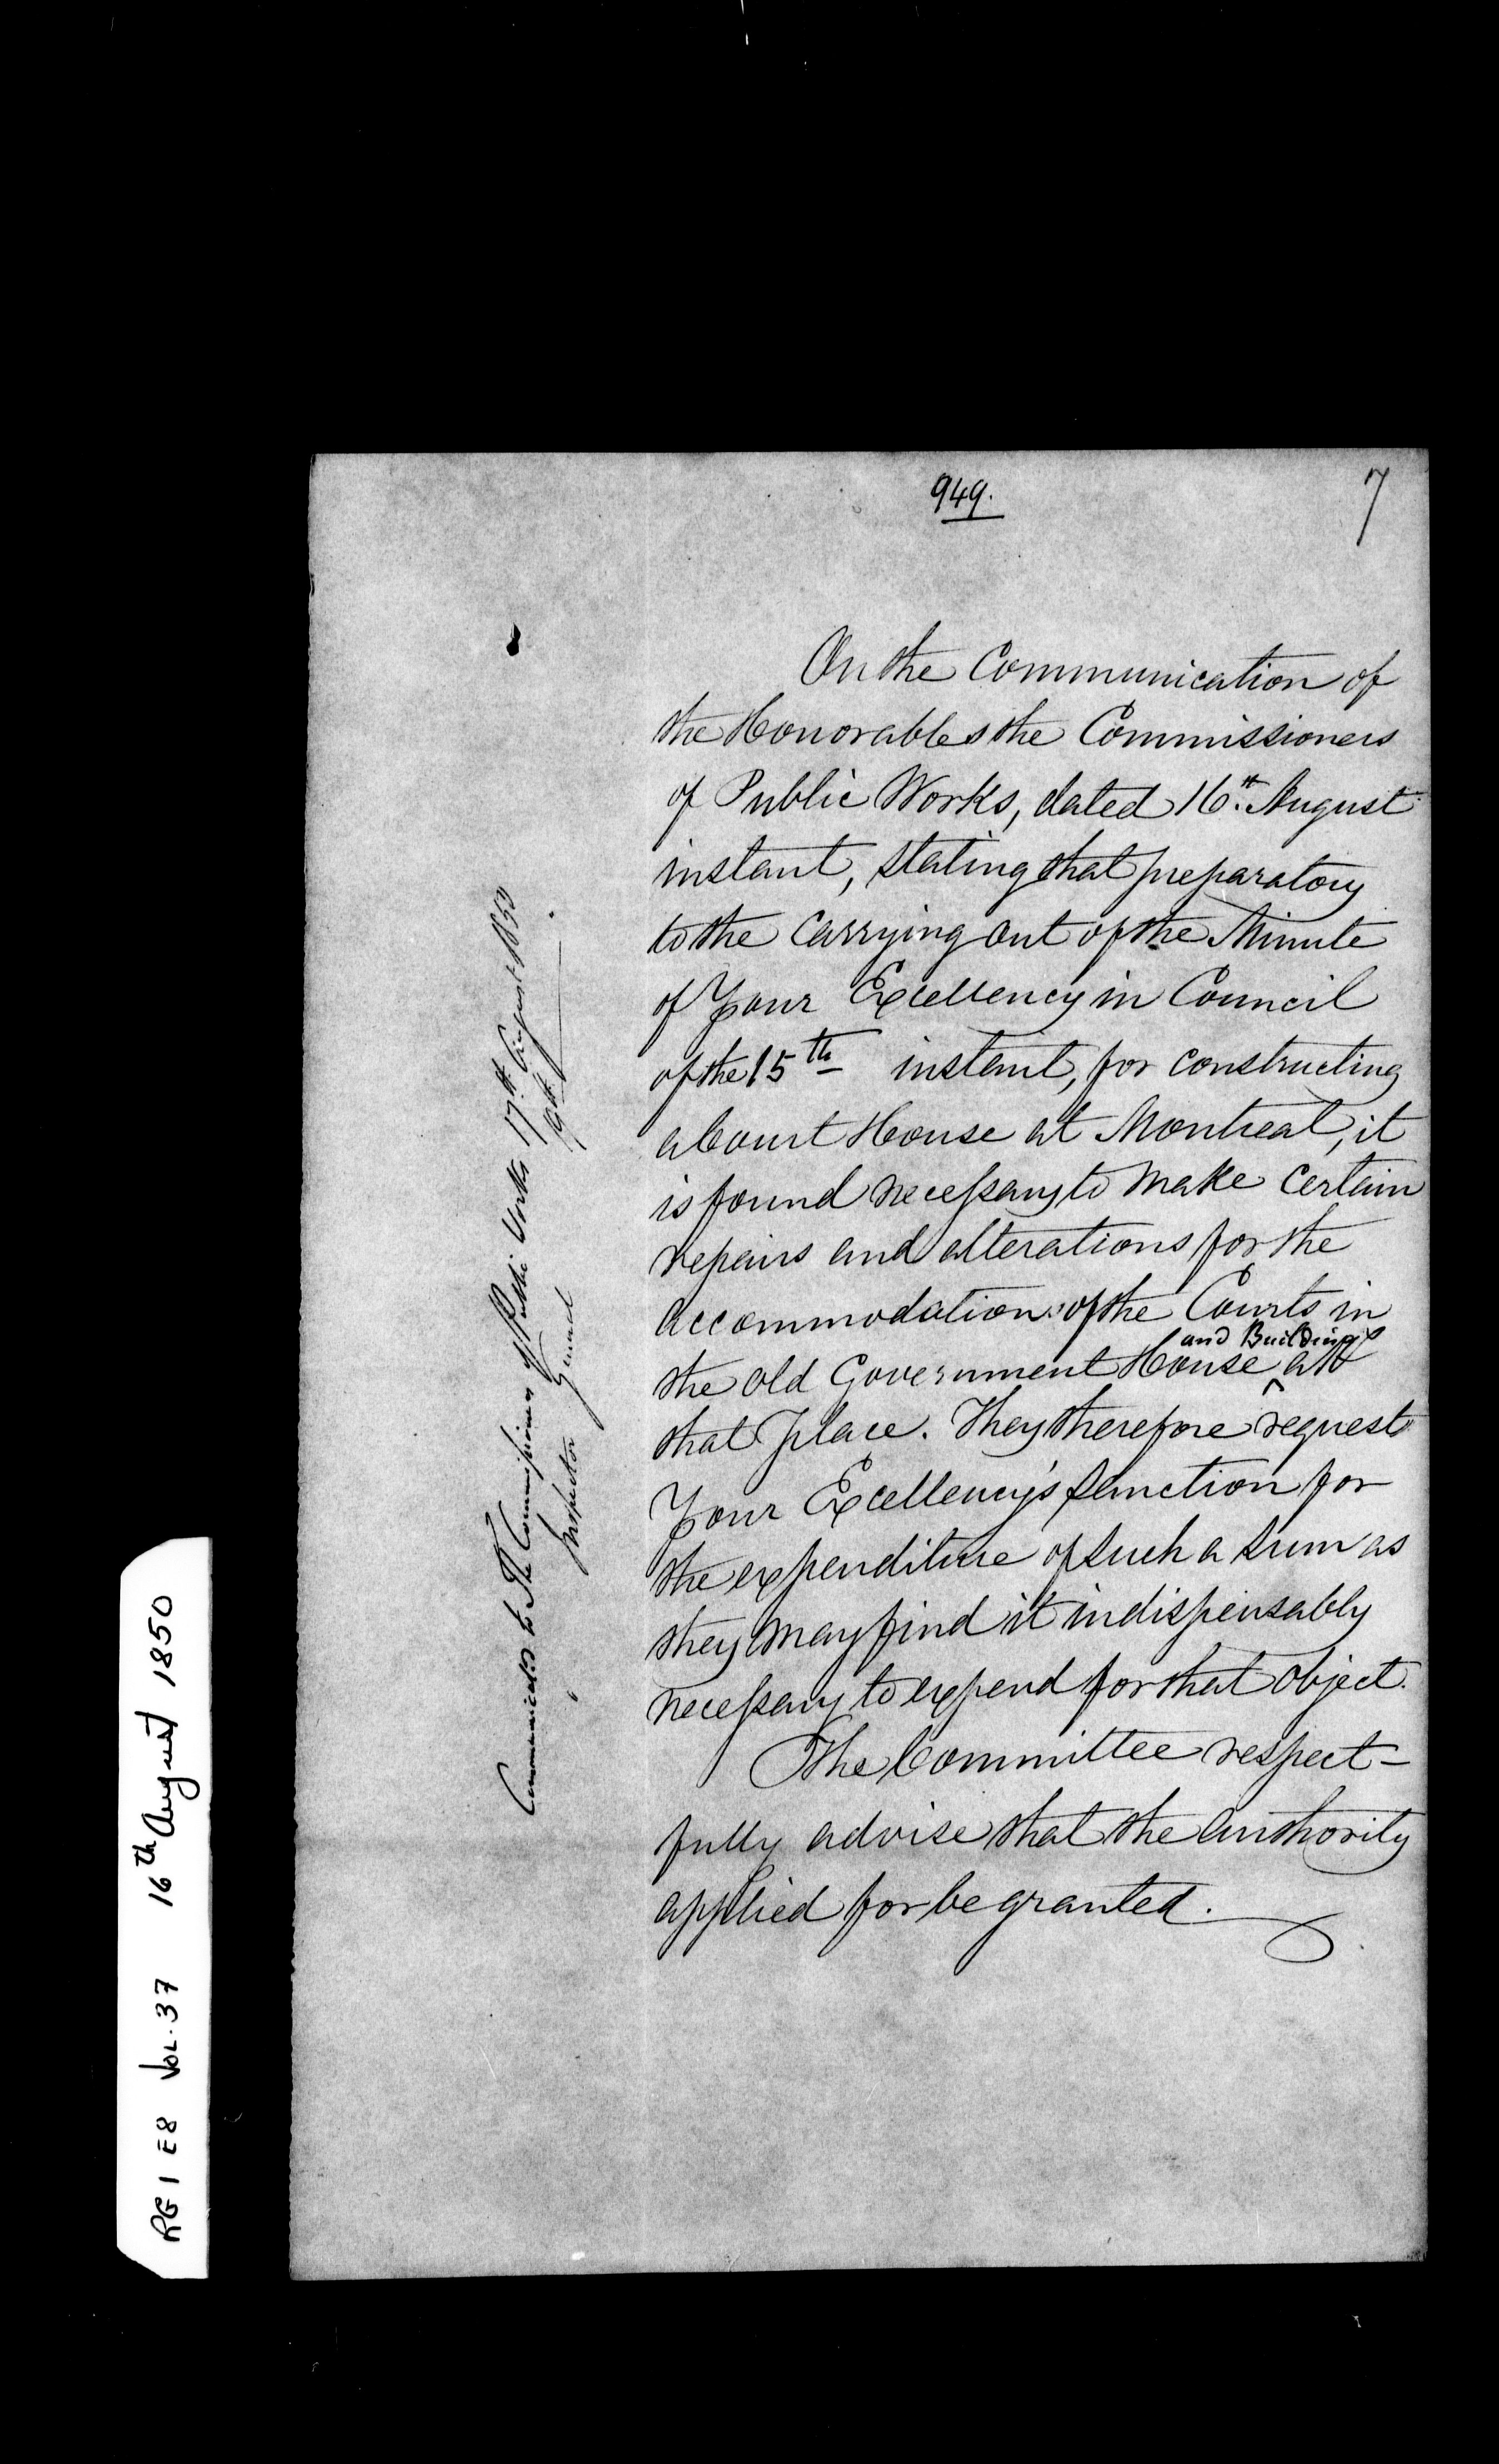 949.
7
On the Communication of
the Honorables the Commissioners
of Public Works, dated 16th August
instant, stating that preparatory
to the Carrying out of the Minute
of Your Excellency in Council
of the 15th instant, for constructing
a Court House at Montreal, it
is found necessary to make certain
repairs and alterations for the
accommodation of the Courts in
and Buildings
the old Government House ^ at
that place. They therefore request
Your Excellency's sanction for
the expenditure of such a sum as
they may find it indispensably
necessary to expend for that object.
The Committee respect-
fully advise that the authority
applied for be granted.
Communicated to The Commissioners of Public Works 17th August 1850
Inspector General 19th
RG 1 E8 VOL. 37 16th August 1850